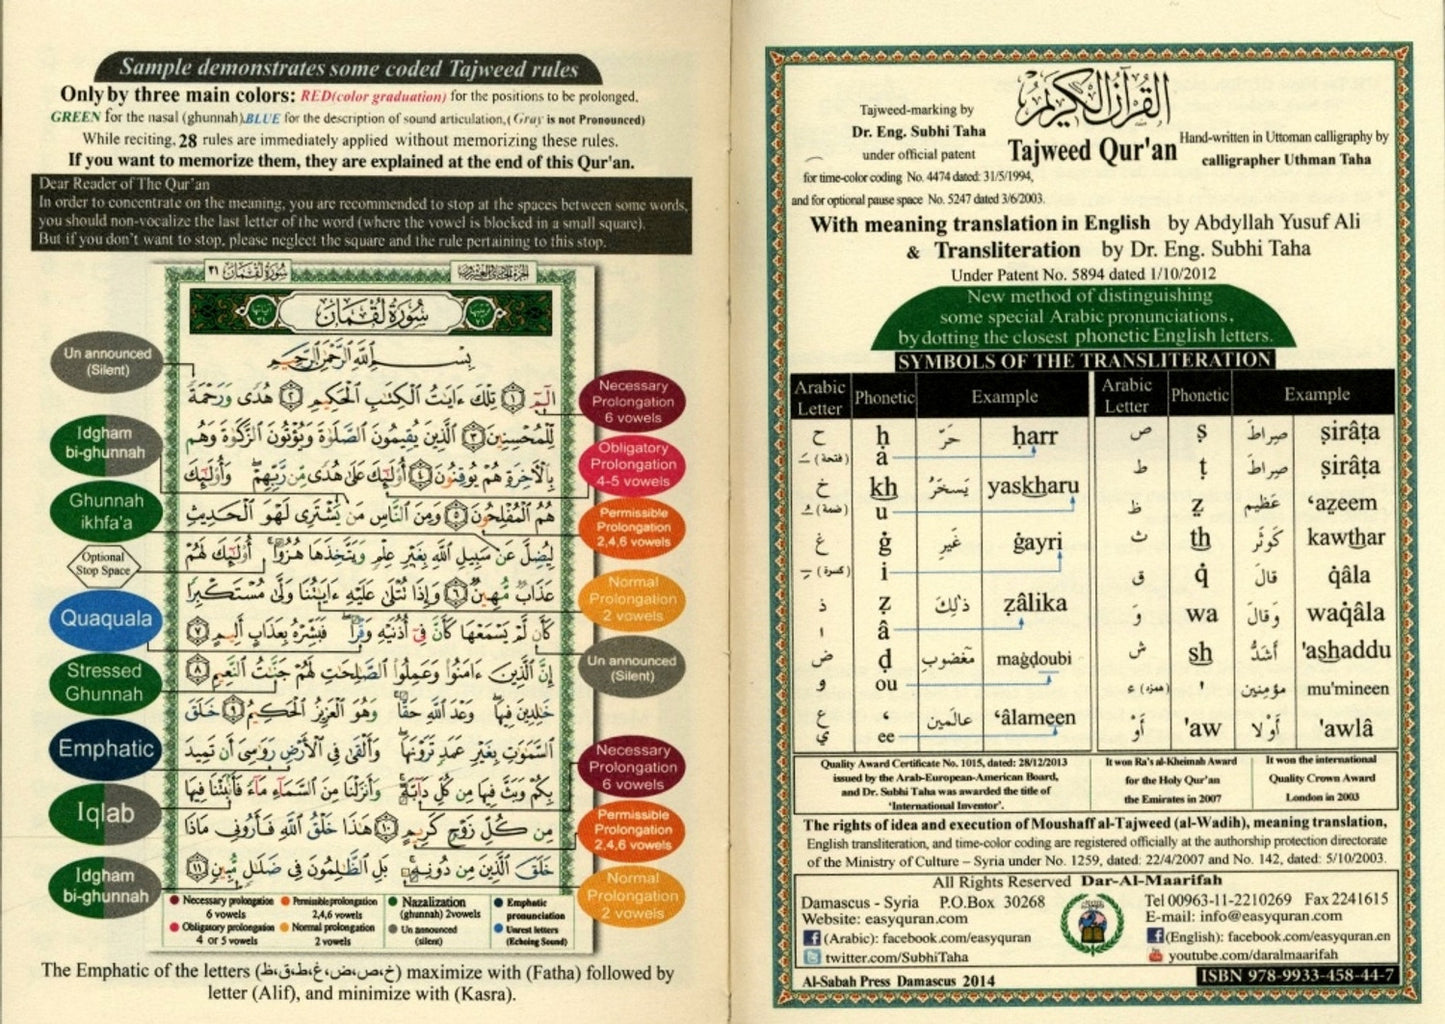 Sample demonstrates some coded Tajweed rules
Only by three main colors: RED(color graduation) for the positions to be prolonged.
GREEN for the nasal (ghunnah).BLUE for the description of sound articulation,(Gray is not Pronounced)
While reciting, 28 rules are immediately applied without memorizing these rules.
If you want to memorize them, they are explained at the end of this Qur'an.
Dear Reader of The Qur'an
In order to concentrate on the meaning, you are recommended to stop at the spaces between some words,
you should non-vocalize the last letter of the word (where the vowel is blocked in a small square).
But if you don't want to stop, please neglect the square and the rule pertaining to this stop.
سُورَةُ لُقْمَان ٣١
سُورَةُ لُقْمَان
بِسْمِ اللَّهِ الرَّحْمَٰنِ الرَّحِيمِ
الٓمٓ ١ تِلْكَ ءَايَٰتُ الْكِتَٰبِ الْحَكِيمِ ٢ هُدًى وَرَحْمَةً
لِّلْمُحْسِنِينَ ٣ الَّذِينَ يُقِيمُونَ الصَّلَوٰةَ وَيُؤْتُونَ الزَّكَوٰةَ وَهُم
بِالْءَاخِرَةِ هُمْ يُوقِنُونَ ٤ أُو۟لَٰٓئِكَ عَلَىٰ هُدًى مِّن رَّبِّهِمْ وَأُو۟لَٰٓئِكَ
هُمُ الْمُفْلِحُونَ ٥ وَمِنَ النَّاسِ مَن يَشْتَرِى لَهْوَ الْحَدِيثِ
لِيُضِلَّ عَن سَبِيلِ اللَّهِ بِغَيْرِ عِلْمٍ وَيَتَّخِذَهَا هُزُوًا أُو۟لَٰٓئِكَ لَهُمْ
عَذَابٌ مُّهِينٌ ٦ وَإِذَا تُتْلَىٰ عَلَيْهِ ءَايَٰتُنَا وَلَّىٰ مُسْتَكْبِرًا
كَأَن لَّمْ يَسْمَعْهَا كَأَنَّ فِىٓ أُذُنَيْهِ وَقْرًا فَبَشِّرْهُ بِعَذَابٍ أَلِيمٍ ٧
إِنَّ الَّذِينَ ءَامَنُوا۟ وَعَمِلُوا۟ الصَّٰلِحَٰتِ لَهُمْ جَنَّٰتُ النَّعِيمِ ٨
خَٰلِدِينَ فِيهَا وَعْدَ اللَّهِ حَقًّا وَهُوَ الْعَزِيزُ الْحَكِيمُ ٩ خَلَقَ
السَّمَٰوَٰتِ بِغَيْرِ عَمَدٍ تَرَوْنَهَا وَأَلْقَىٰ فِى الْأَرْضِ رَوَٰسِىَ أَن تَمِيدَ
بِكُمْ وَبَثَّ فِيهَا مِن كُلِّ دَآبَّةٍ وَأَنزَلْنَا مِنَ السَّمَآءِ مَآءً فَأَنۢبَتْنَا فِيهَا
مِن كُلِّ زَوْجٍ كَرِيمٍ ١٠ هَٰذَا خَلْقُ اللَّهِ فَأَرُونِى مَاذَا
خَلَقَ الَّذِينَ مِن دُونِهِ بَلِ الظَّٰلِمُونَ فِى ضَلَٰلٍ مُّبِينٍ ١١
Un announced
(Silent)
Idgham
bi-ghunnah
Ghunnah
ikhfa'a
Optional
Stop Space
Quaquala
Stressed
Ghunnah
Emphatic
Iqlab
Idgham
bi-ghunnah
Necessary
Prolongation
6 vowels
Obligatory
Prolongation
4-5 vowels
Permissible
Prolongation
2,4,6 vowels
Normal
Prolongation
2 vowels
Un announced
(Silent)
Necessary
Prolongation
6 vowels
Permissible
Prolongation
2,4,6 vowels
Normal
Prolongation
2 vowels
Necessary prolongation
6 vowels
Obligatory prolongation
4 or 5 vowels
Permissible prolongation
2,4,6 vowels
Normal prolongation
2 vowels
Nazalization
(ghunnah) 2vowels
Un announced
(silent)
Emphatic
pronunciation
Unrest letters
(Echoing Sound)
The Emphatic of the letters (خ،ص،ض،غ،ط،ق،ظ) maximize with (Fatha) followed by
letter (Alif), and minimize with (Kasra).
القرآن الكريم
Tajweed-marking by
Dr. Eng. Subhi Taha
under official patent
for time-color coding No. 4474 dated: 31/5/1994,
and for optional pause space No. 5247 dated 3/6/2003.
Tajweed Qur'an
Hand-written in Uttoman calligraphy by
calligrapher Uthman Taha
With meaning translation in English by Abdyllah Yusuf Ali
& Transliteration by Dr. Eng. Subhi Taha
Under Patent No. 5894 dated 1/10/2012
New method of distinguishing
some special Arabic pronunciations,
by dotting the closest phonetic English letters.
SYMBOLS OF THE TRANSLITERATION
Arabic Letter Phonetic Example Arabic Letter Phonetic Example
ح ḥ حَرّ ḥarr ص ṣ صِراطَ ṣirâṭa
(فتحة) a ط ṭ صِراطَ ṣirâṭa
خ kh يَسخَرُ yaskharu ظ ẓ عَظيم ‘aẓeem
(ضمة) u ث th كَوثَر kawthar
غ ġ غَيرِ ġayri ق q̇ قالَ q̇âla
(كسرة) i
ذ ẓ ذٰلِكَ ẓâlika وَ wa وَقالَ waq̇âla
ا â ش sh أَشَدُّ 'ashaddu
ض ḍ مَغضوب maġdoubi
و ou ء (همزة) ' مؤمِنين mu'mineen
ع ‘ عالَمين ‘âlameen أَوْ 'aw أَوْلا 'awlâ
ي ee
Quality Award Certificate No. 1015, dated: 28/12/2013
issued by the Arab-European-American Board,
and Dr. Subhi Taha was awarded the title of
'International Inventor'.
It won Ra's al-Kheimah Award
for the Holy Qur'an
the Emirates in 2007
It won the international
Quality Crown Award
London in 2003
The rights of idea and execution of Moushaff al-Tajweed (al-Wadih), meaning translation,
English transliteration, and time-color coding are registered officially at the authorship protection directorate
of the Ministry of Culture – Syria under No. 1259, dated: 22/4/2007 and No. 142, dated: 5/10/2003.
All Rights Reserved Dar-Al-Maarifah
Damascus - Syria P.O.Box 30268
Website: easyquran.com
(Arabic): facebook.com/easyquran
twitter.com/SubhiTaha
Tel 00963-11-2210269 Fax 2241615
E-mail: info@easyquran.com
(English): facebook.com/easyquran.en
youtube.com/daralmaarifah
Al-Sabah Press Damascus 2014
ISBN 978-9933-458-44-7